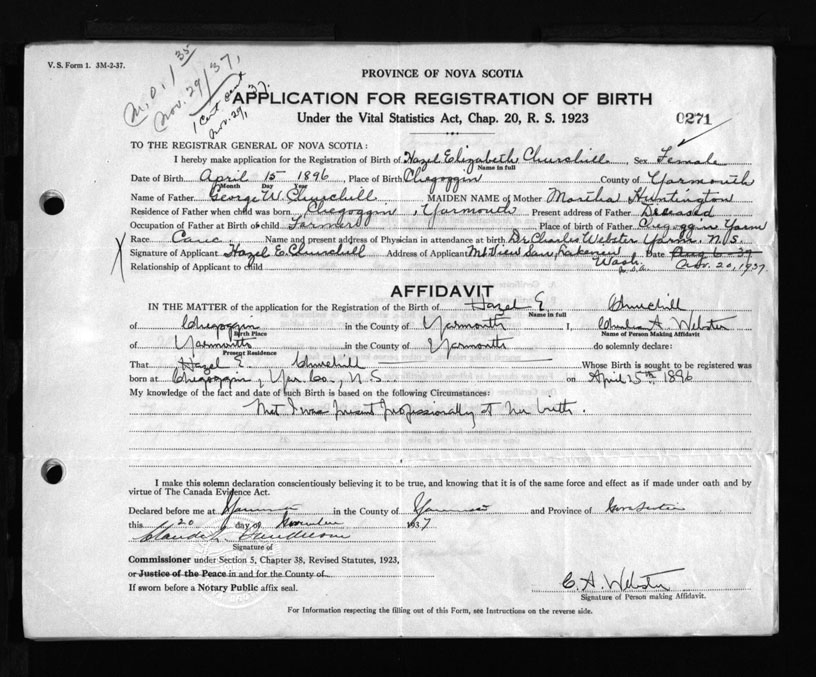 V. S. Form 1. 3M-2-37.
M.O. 1/35
Nov. 29/37,
1 Cert sent
Nov. 29, 37.
PROVINCE OF NOVA SCOTIA
APPLICATION FOR REGISTRATION OF BIRTH
Under the Vital Statistics Act, Chap. 20, R. S. 1923
0271
TO THE REGISTRAR GENERAL OF NOVA SCOTIA:
I hereby make application for the Registration of Birth of Hazel Elizabeth Churchill, Sex Female
Name in full
Date of Birth April 15 1896 Place of Birth Chegoggin County of Yarmouth
Month Day Year
Name of Father George W. Churchill MAIDEN NAME of Mother Martha Huntington
Residence of Father when child was born Chegoggin, Yarmouth Present address of Father Deceased
Occupation of Father at Birth of child Farmer Place of birth of Father Chegoggin Yarm
Race Name and present address of Physician in attendance at birth Dr. Charles Webster Yarm. N.S.
X Signature of Applicant Hazel E. Churchill Address of Applicant Mt View San, Lakeview Date Aug 6-37
Wash. U.S.A. Nov. 20, 1937
Relationship of Applicant to child
AFFIDAVIT
IN THE MATTER of the application for the Registration of the Birth of Hazel E. Churchill
Name in full
of Chegoggin in the County of Yarmouth I, Charles A. Webster
Birth Place Name of Person Making Affidavit
of Yarmouth in the County of Yarmouth do solemnly declare:
Present Residence
That Hazel E. Churchill Whose Birth is sought to be registered was
born at Chegoggin, Yar. Co., N.S. on April 15th 1896
My knowledge of the fact and date of such Birth is based on the following Circumstances:
That I was present professionally at her birth.
I make this solemn declaration conscientiously believing it to be true, and knowing that it is of the same force and effect as if made under oath and by
virtue of The Canada Evidence Act.
Declared before me at Yarmouth in the County of Yarmouth and Province of Nova Scotia
this 20 day of November 1937
Signature of
Commissioner under Section 5, Chapter 38, Revised Statutes, 1923,
or Justice of the Peace in and for the County of
If sworn before a Notary Public affix seal.
C. A. Webster
Signature of Person making Affidavit.
For Information respecting the filling out of this Form, see Instructions on the reverse side.